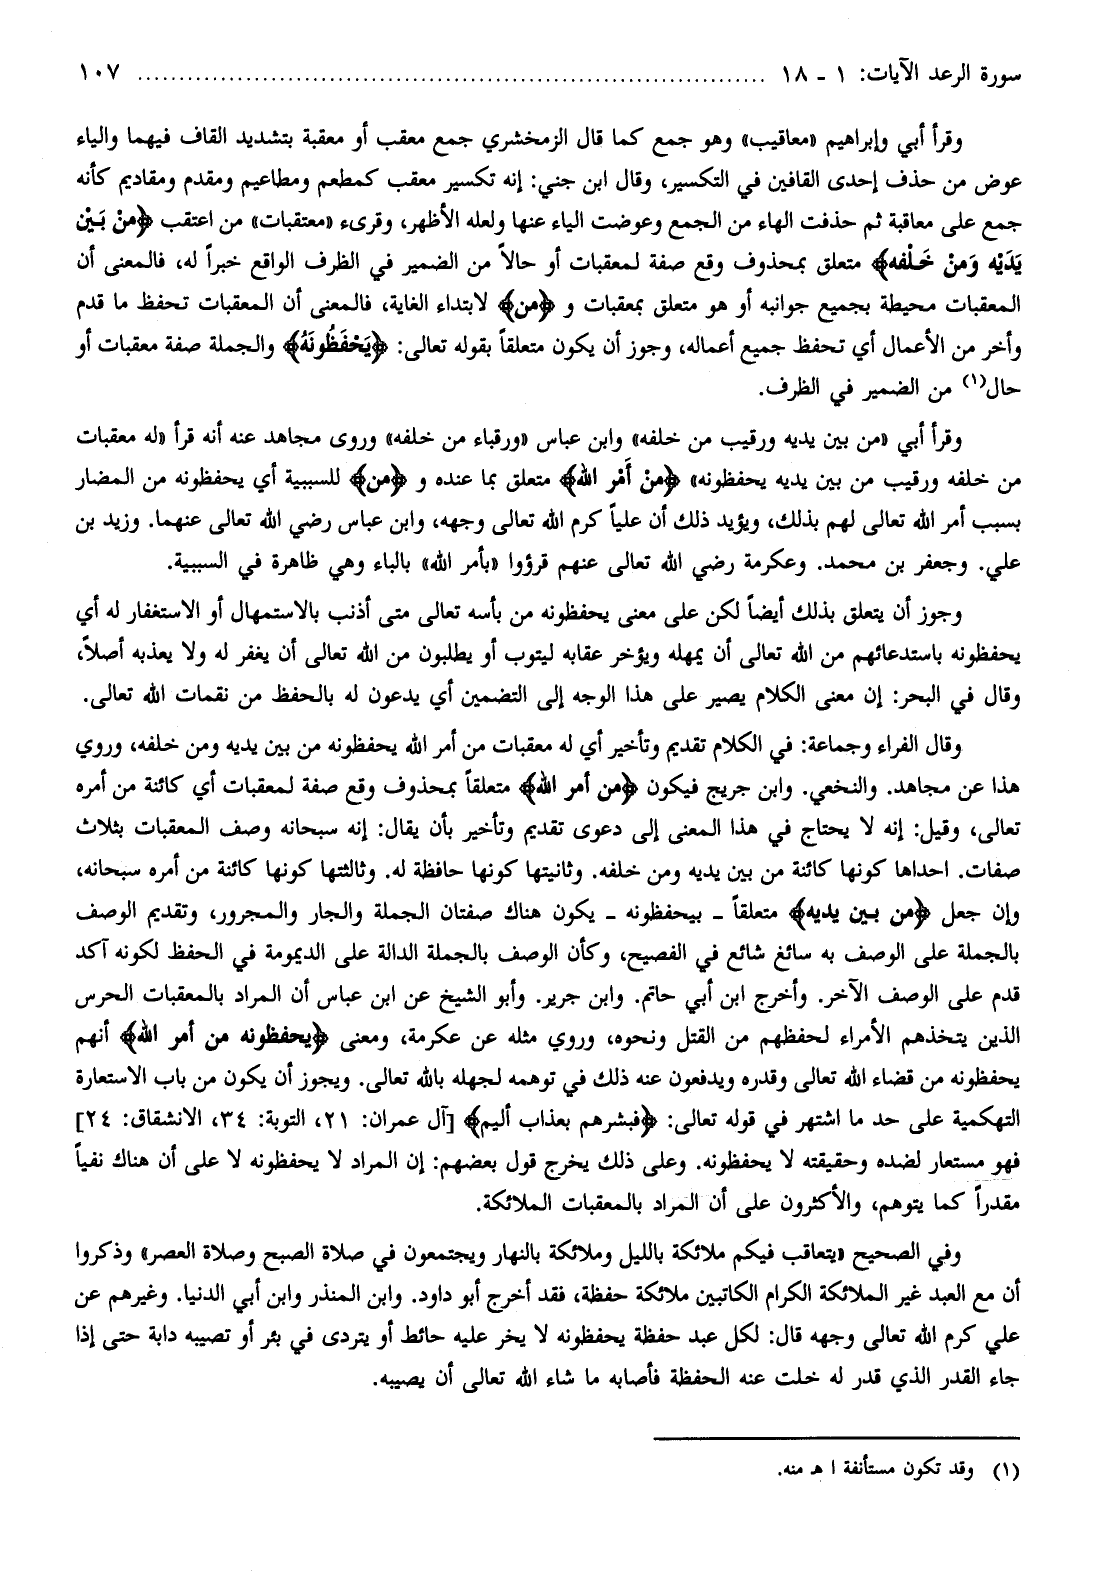 سورة الرعد الآيات: ١ ـ ١٨ ........................................................................ ١٠٧
وقرأ أبي وإبراهيم «معاقيب» وهو جمع كما قال الزمخشري جمع معقب أو معقبة بتشديد القاف فيهما والياء
عوض من حذف إحدى القافين في التكسير، وقال ابن جني: إنه تكسير معقب كمطعم ومطاعيم ومقدم ومقاديم كأنه
جمع على معاقبة ثم حذفت الهاء من الجمع وعوضت الياء عنها ولعله الأظهر، وقرىء «معتقبات» من اعتقب ﴿منْ بَيْن
يَدَيْه وَمنْ خَلْفه﴾ متعلق بمحذوف وقع صفة لمعقبات أو حالاً من الضمير في الظرف الواقع خبراً له، فالمعنى أن
المعقبات محيطة بجميع جوانبه أو هو متعلق بمعقبات و ﴿من﴾ لابتداء الغاية، فالمعنى أن المعقبات تحفظ ما قدم
وأخر من الأعمال أي تحفظ جميع أعماله، وجوز أن يكون متعلقاً بقوله تعالى: ﴿يَحْفَظُونَهُ﴾ والجملة صفة معقبات أو
حال(١) من الضمير في الظرف.
وقرأ أبي «من بين يديه ورقيب من خلفه» وابن عباس «ورقباء من خلفه» وروى مجاهد عنه أنه قرأ «له معقبات
من خلفه ورقيب من بين يديه يحفظونه» ﴿منْ أَمْر الله﴾ متعلق بما عنده و ﴿من﴾ للسببية أي يحفظونه من المضار
بسبب أمر الله تعالى لهم بذلك، ويؤيد ذلك أن علياً كرم الله تعالى وجهه، وابن عباس رضي الله تعالى عنهما. وزيد بن
علي. وجعفر بن محمد. وعكرمة رضي الله تعالى عنهم قرؤوا «بأمر الله» بالباء وهي ظاهرة في السببية.
وجوز أن يتعلق بذلك أيضاً لكن على معنى يحفظونه من بأسه تعالى متى أذنب بالاستمهال أو الاستغفار له أي
يحفظونه باستدعائهم من الله تعالى أن يمهله ويؤخر عقابه ليتوب أو يطلبون من الله تعالى أن يغفر له ولا يعذبه أصلاً،
وقال في البحر: إن معنى الكلام يصير على هذا الوجه إلى التضمين أي يدعون له بالحفظ من نقمات الله تعالى.
وقال الفراء وجماعة: في الكلام تقديم وتأخير أي له معقبات من أمر الله يحفظونه من بين يديه ومن خلفه، وروي
هذا عن مجاهد. والنخعي. وابن جريج فيكون ﴿من أمر الله﴾ متعلقاً بمحذوف وقع صفة لمعقبات أي كائنة من أمره
تعالى، وقيل: إنه لا يحتاج في هذا المعنى إلى دعوى تقديم وتأخير بأن يقال: إنه سبحانه وصف المعقبات بثلاث
صفات. احداها كونها كائنة من بين يديه ومن خلفه. وثانيتها كونها حافظة له. وثالثتها كونها كائنة من أمره سبحانه،
وإن جعل ﴿من بين يديه﴾ متعلقاً ـ بيحفظونه ـ يكون هناك صفتان الجملة والجار والمجرور، وتقديم الوصف
بالجملة على الوصف به سائغ شائع في الفصيح، وكأن الوصف بالجملة الدالة على الديمومة في الحفظ لكونه آكد
قدم على الوصف الآخر. وأخرج ابن أبي حاتم. وابن جرير. وأبو الشيخ عن ابن عباس أن المراد بالمعقبات الحرس
الذين يتخذهم الأمراء لحفظهم من القتل ونحوه، وروي مثله عن عكرمة، ومعنى ﴿يحفظونه من أمر الله﴾ أنهم
يحفظونه من قضاء الله تعالى وقدره ويدفعون عنه ذلك في توهمه لجهله بالله تعالى. ويجوز أن يكون من باب الاستعارة
التهكمية على حد ما اشتهر في قوله تعالى: ﴿فبشرهم بعذاب أليم﴾ [آل عمران: ٢١، التوبة: ٣٤، الانشقاق: ٢٤]
فهو مستعار لضده وحقيقته لا يحفظونه. وعلى ذلك يخرج قول بعضهم: إن المراد لا يحفظونه لا على أن هناك نفياً
مقدراً كما يتوهم، والأكثرون على أن المراد بالمعقبات الملائكة.
وفي الصحيح «يتعاقب فيكم ملائكة بالليل وملائكة بالنهار ويجتمعون في صلاة الصبح وصلاة العصر» وذكروا
أن مع العبد غير الملائكة الكرام الكاتبين ملائكة حفظة، فقد أخرج أبو داود. وابن المنذر وابن أبي الدنيا. وغيرهم عن
علي كرم الله تعالى وجهه قال: لكل عبد حفظة يحفظونه لا يخر عليه حائط أو يتردى في بئر أو تصيبه دابة حتى إذا
جاء القدر الذي قدر له خلت عنه الحفظة فأصابه ما شاء الله تعالى أن يصيبه.
(١) وقد تكون مستأنفة ا هـ منه.